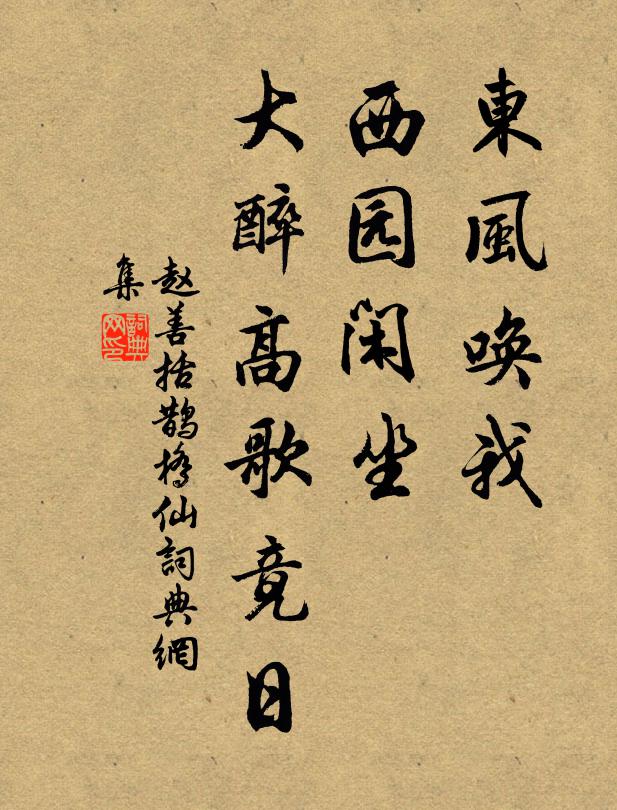 東風唤我
西园闲坐
大醉高歌竟日
赵善括鹊桥仙詞典網
集
詞典
网印